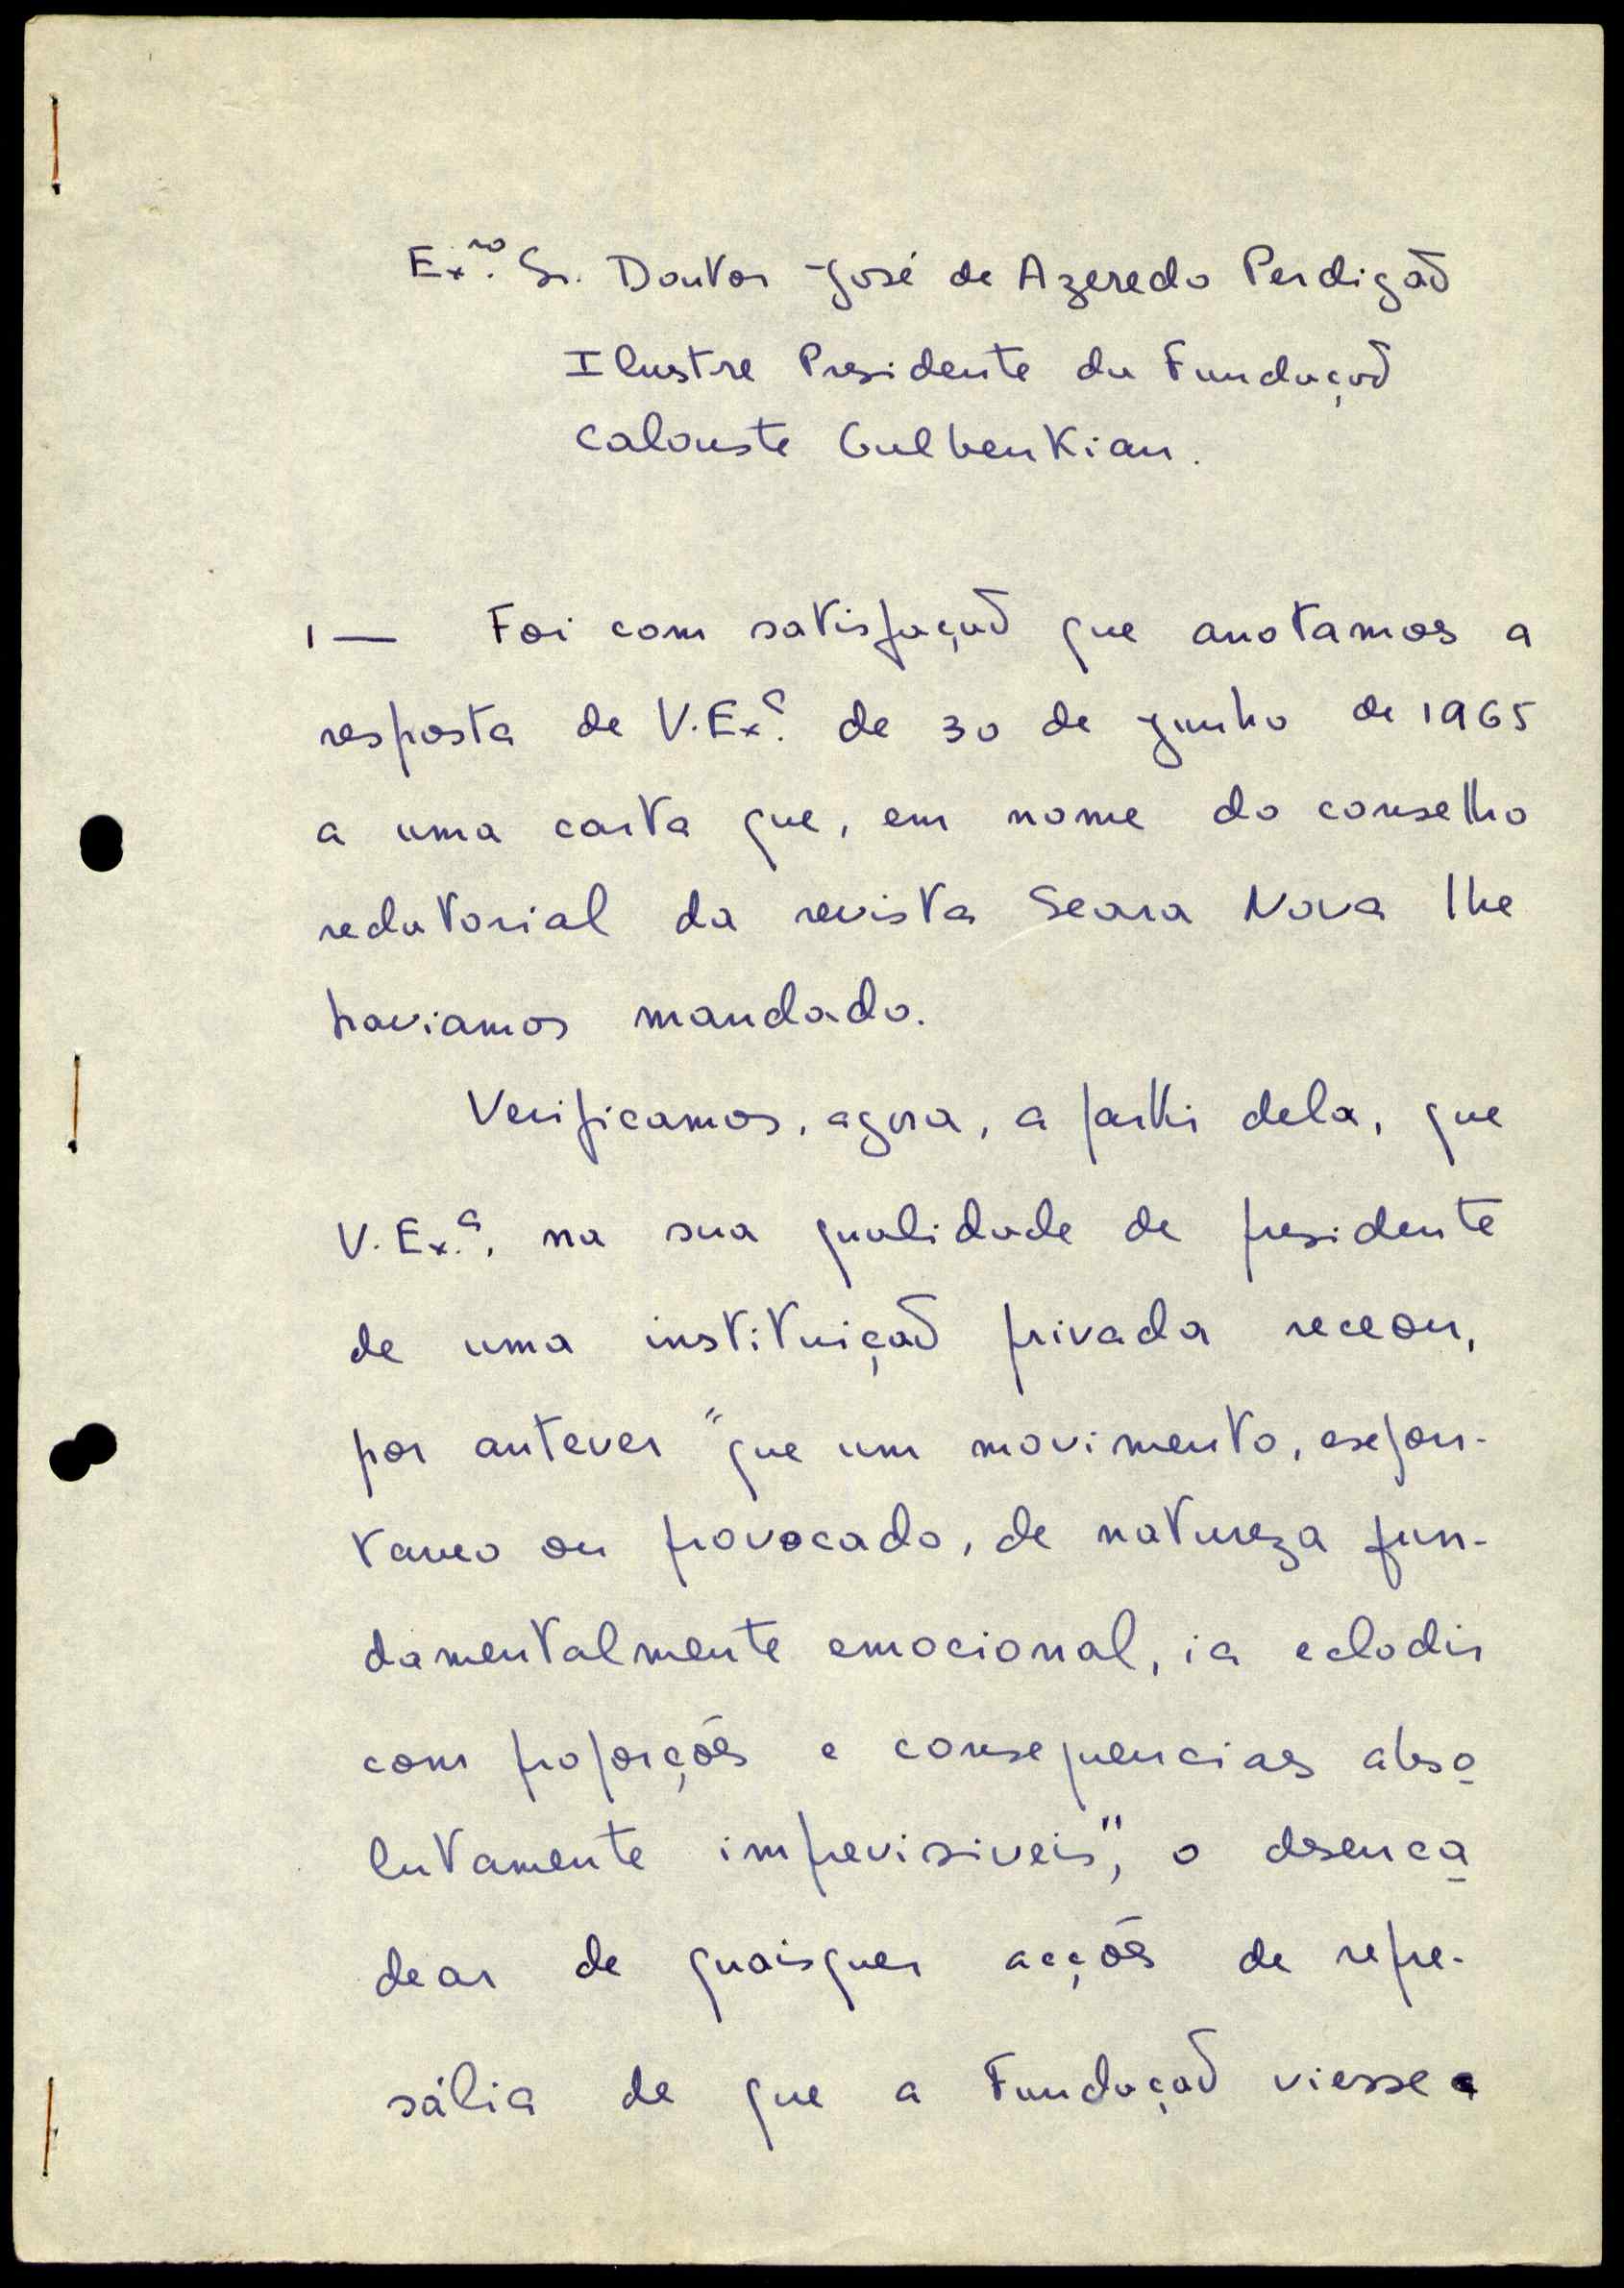 Ex.mo Sr. Doutor José de Azeredo Perdigão
Ilustre Presidente da Fundação
Calouste Gulbenkian.
1 — Foi com satisfação que anotamos a
resposta de V. Ex.ª de 30 de junho de 1965
a uma carta que, em nome do conselho
redatorial da revista Seara Nova lhe
haviamos mandado.
Verificamos, agora, a partir dela, que
V. Ex.ª, na sua qualidade de presidente
de uma instituição privada receou,
por antever "que um movimento, espon-
taneo ou provocado, de natureza fun-
damentalmente emocional, ia eclodir
com proporções e consequencias abso
lutamente imprevisiveis", o desenca
dear de quaisquer acções de repre-
sália de que a Fundação viesse a